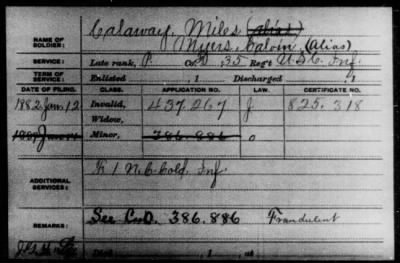 NAME OF SOLDIER: Calaway, Miles (alias)
Myers, Calvin (Alias)
SERVICE: Late rank, P. Co. D, 35 Reg't U.S.C. Inf.
TERM OF SERVICE: Enlisted , 1 Discharged , 1
DATE OF FILING. CLASS. APPLICATION NO. LAW. CERTIFICATE NO.
1882 Jan. 12 Invalid, 437.267 J. 825.318
Widow,
Jan. Minor, 386.886 o
ADDITIONAL SERVICES: K 1 N.C. Cold. Inf.
REMARKS: See C.O.D. 386.886 Fraudulent
, 1 , at